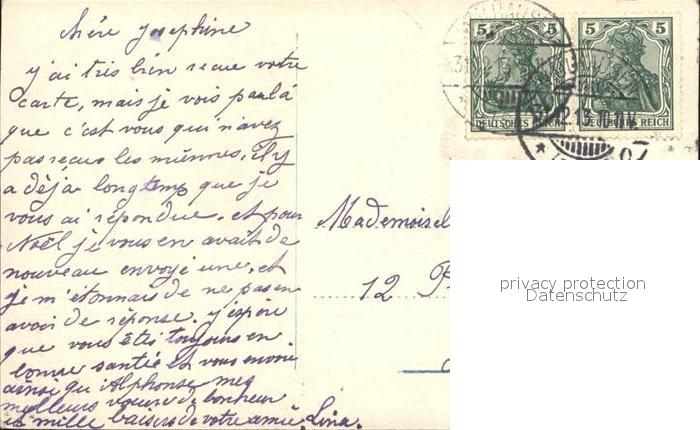 Chère Josephine
y'ai tris bien recue votre
carte, mais je vois par là
que c'est vous qui n'avez
pas recus les miennes, il y
a déjà longtemp que je
vous ai répondue. et pour
Noël je vous en avait de
nouveau envoyé une, et
je m'étonnais de ne pas en
avoir de réponse. y'espère
que vous êtes toujours en
bonne santié et vous envoie
ainsi qu'Alphonse mes
meilleurs voeux de bonheur
et mille baisers de votre amie, Lina.
5 5 5 5
DEUTSCHES REICH DEUTSCHES REICH
Mademoisel
12
privacy protection
Datenschutz